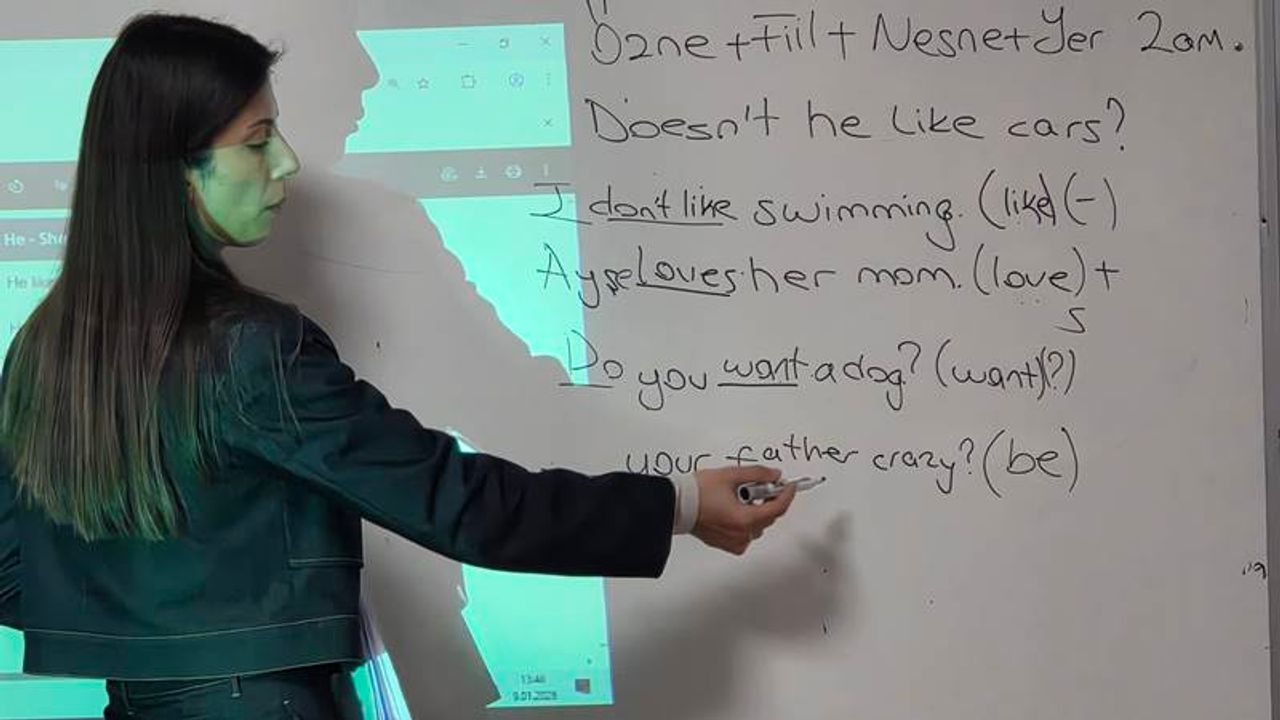 Özne + Fiil + Nesne + Yer Zam.
Doesn't he like cars?
I don't like swimming. (like) (-)
Ayse loves her mom. (love) +
s
Do you want a dog? (want) (?)
your father crazy? (be)
He - She
He
13:46
9.01.2026